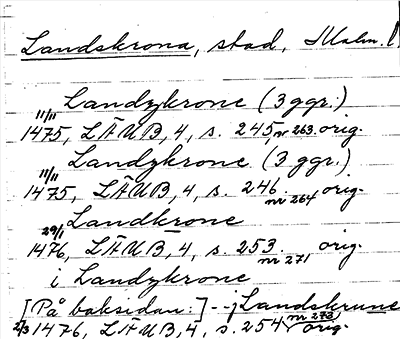 Landskrona, stad, Malm. l
Landzkrone (3 ggr.)
11/11 1475, LÄUB, 4, s. 245 nr 263. orig.
Landzkrone (3 ggr.)
11/11 1475, LÄUB, 4, s. 246. nr 264 orig.
Landkrone
29/1 1476, LÄUB, 4, s. 253. nr 271 orig.
i Landzkrone
[På baksidan:] -- j Landskrune
2/3 1476, LÄUB, 4, s. 254 nr 273 orig.